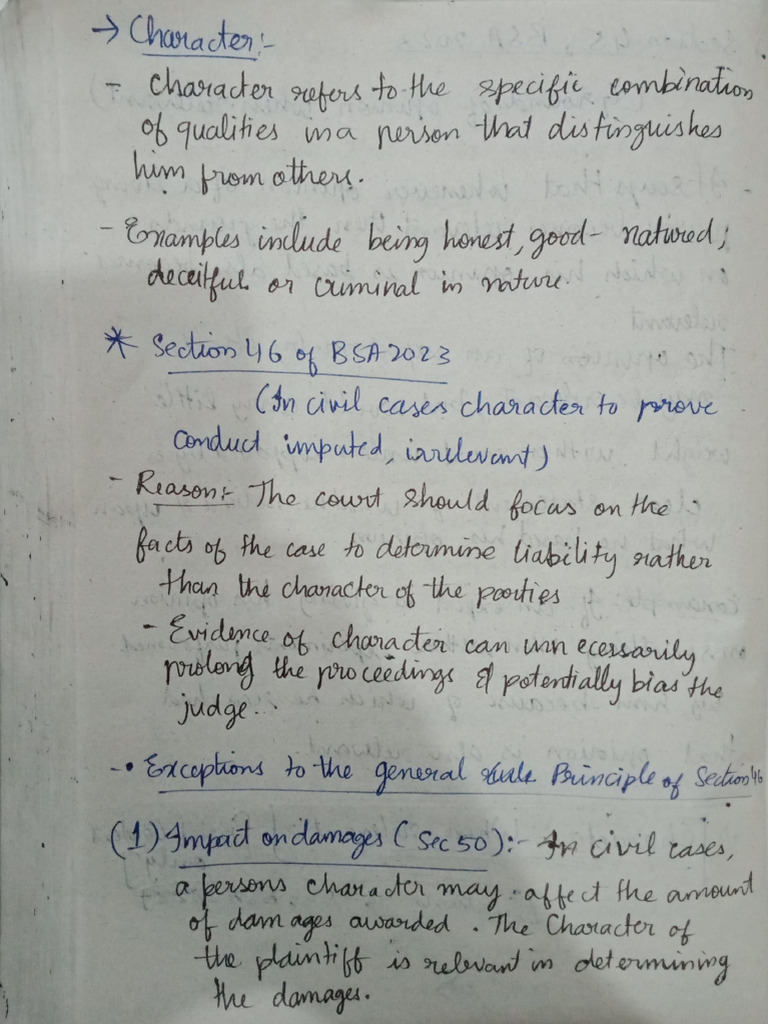 → Character:-
- Character refers to the specific combination
of qualities in a person that distinguishes
him from others.
- Examples include being honest, good-natured,
deceitful or criminal in nature.
* Section 46 of BSA 2023
(In civil cases character to prove
conduct imputed, irrelevant)
- Reason:- The court should focus on the
facts of the case to determine liability rather
than the character of the parties
- Evidence of character can unnecessarily
prolong the proceedings & potentially bias the
judge..
-• Exceptions to the general Principle of Section 46
(1) Impact on damages (Sec 50):- In civil cases,
a persons character may affect the amount
of damages awarded. The Character of
the plaintiff is relevant in determining
the damages.